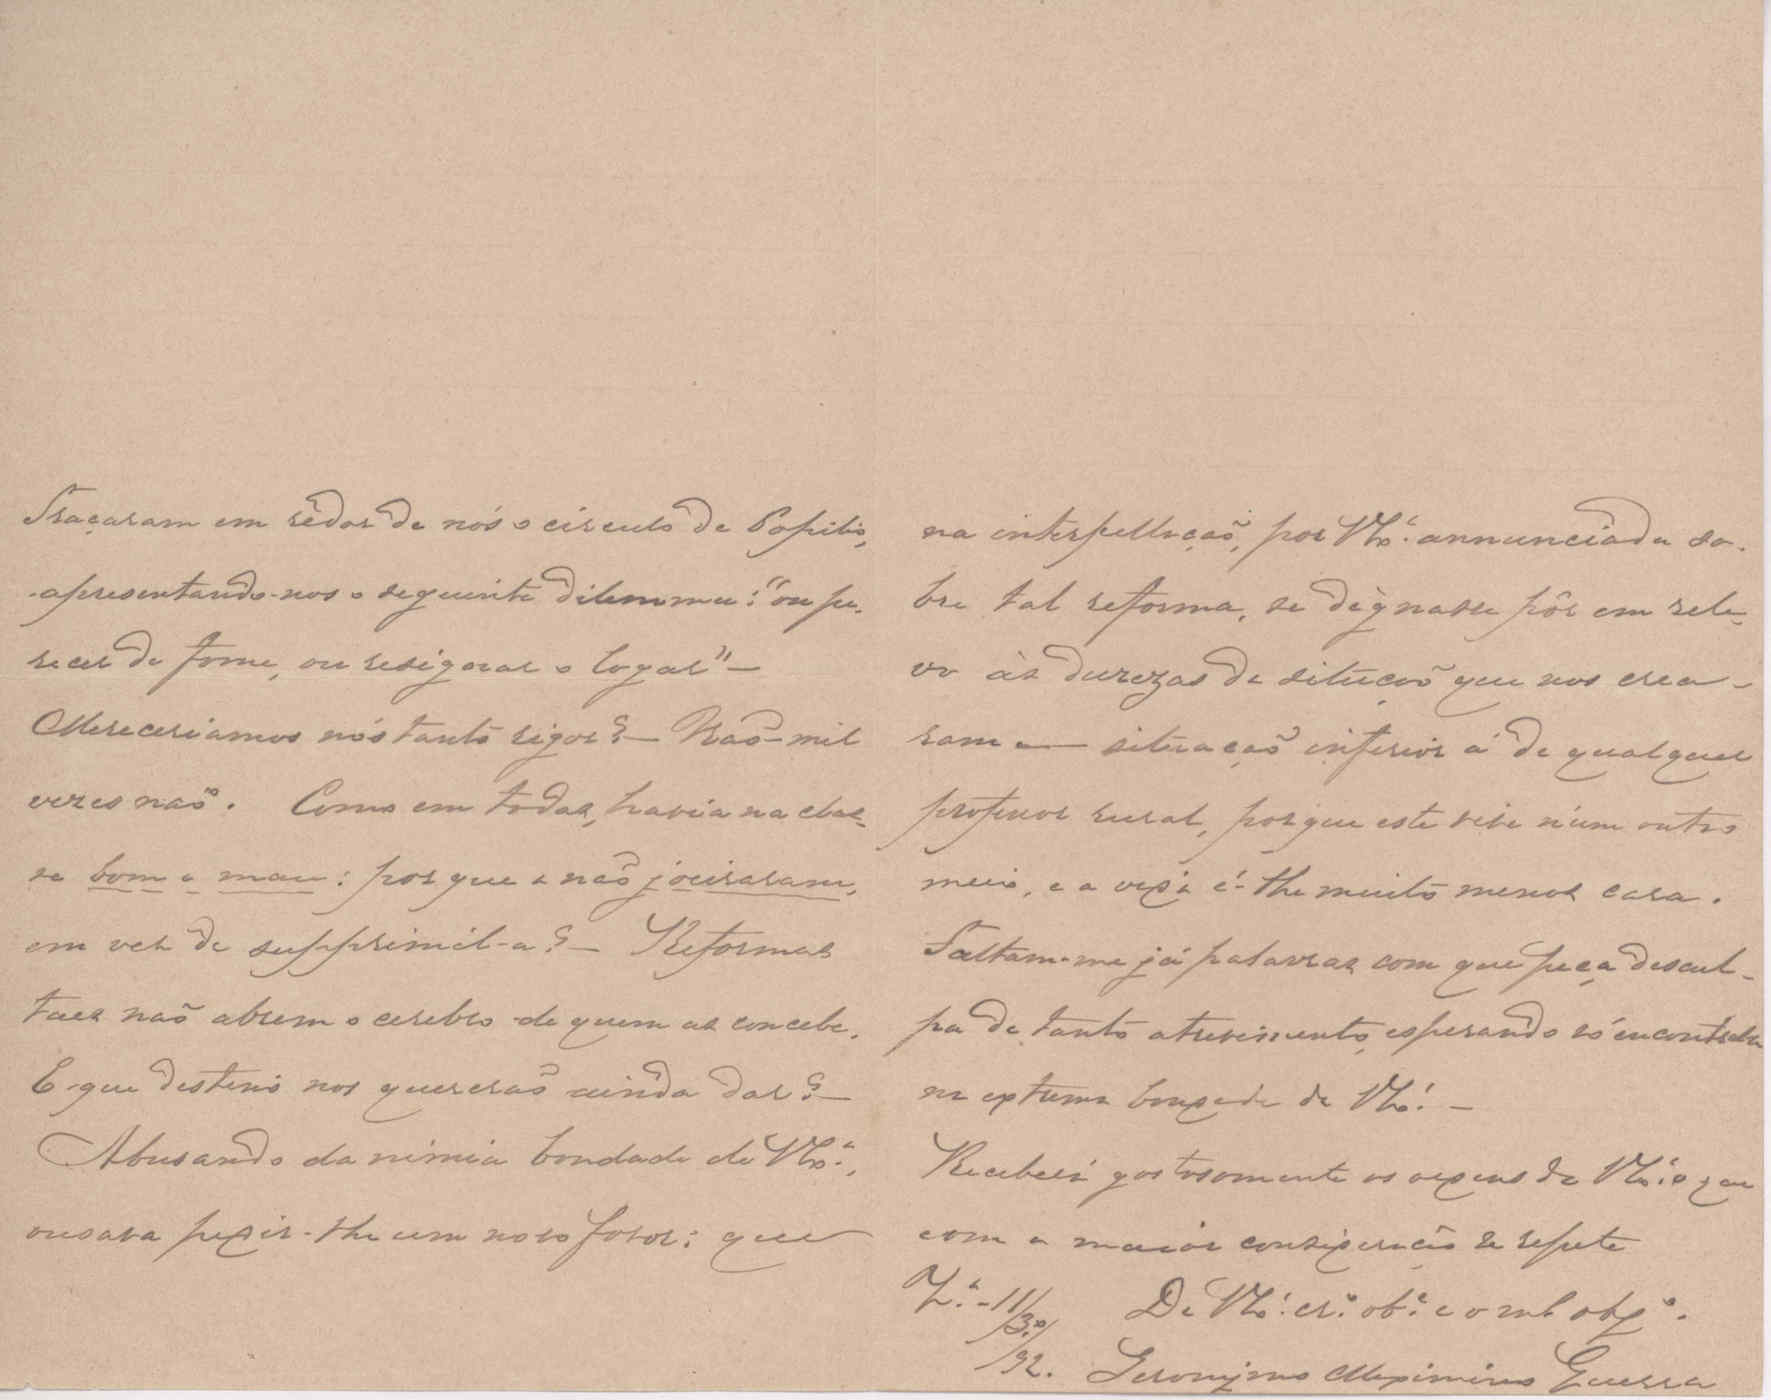 Traçaram em rêdor de nós o circulo de Popilio,
apresentando-nos o seguinte dilemma: "ou pe-
recer de fome, ou resignar o logar" —
Mereceriamos nós tanto rigor? — Não — mil
vezes não. Como em todas, havia na clas-
se bom e mau: por que a não joeiraram,
em vez de supprimil-a? — Reformas
taes não abrem o cerebro de quem as concebe.
E que destino nos quererão ainda dar? —
Abusando da nimia bondade de V. Ex.ª,
ousava pedir-lhe um novo favor: que
na interpellação, por V. Ex.ª annunciada so-
bre tal reforma, se dignasse pôr em rele-
vo às durezas da situção que nos crea-
ram — situação inferior á de qualquer
professor rural, porque este vive n'um outro
meio, e a vida é-lhe muito menos cara.
Faltam-me já palavras com que peça descul-
pa de tanto atrevimento, esperando só encontral-a
na extrema bondade de V. Ex.ª —
Receberá gostosamente as ordens de V. Ex.ª o que
com a maior consideração se repete
11/3.º/92.
De V. Ex.ª cr.º ob.º e o m.t obg.º.
Jeronymo Maximino Guerra